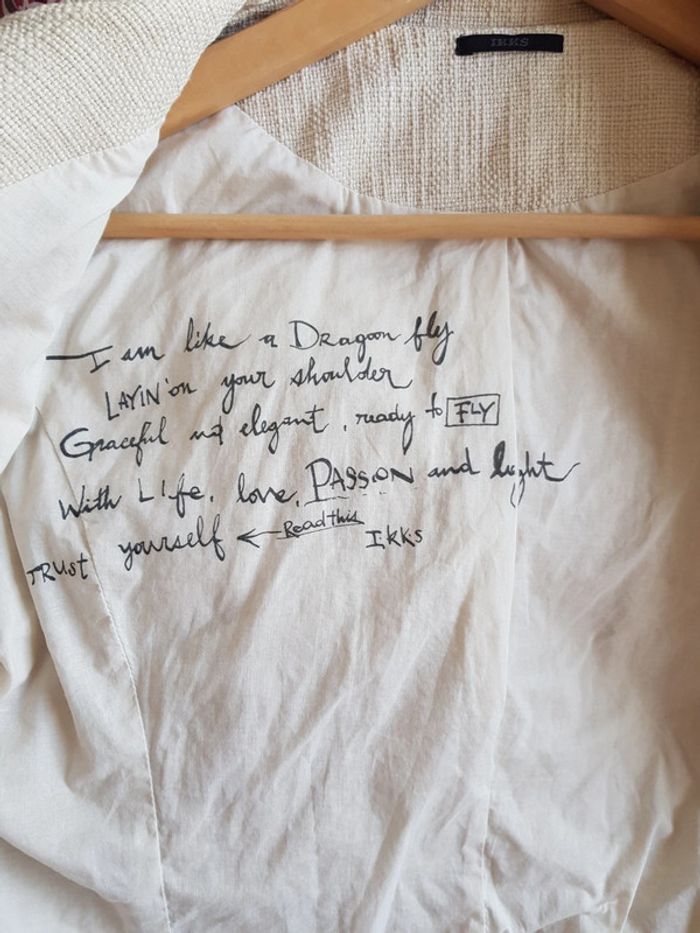 IKKS
I am like a Dragoon fly
LAYIN'on your shoulder
Graceful and elegant, ready to FLY
With Life, love, PASSION and light
TRUST yourself ← Read this IKKS